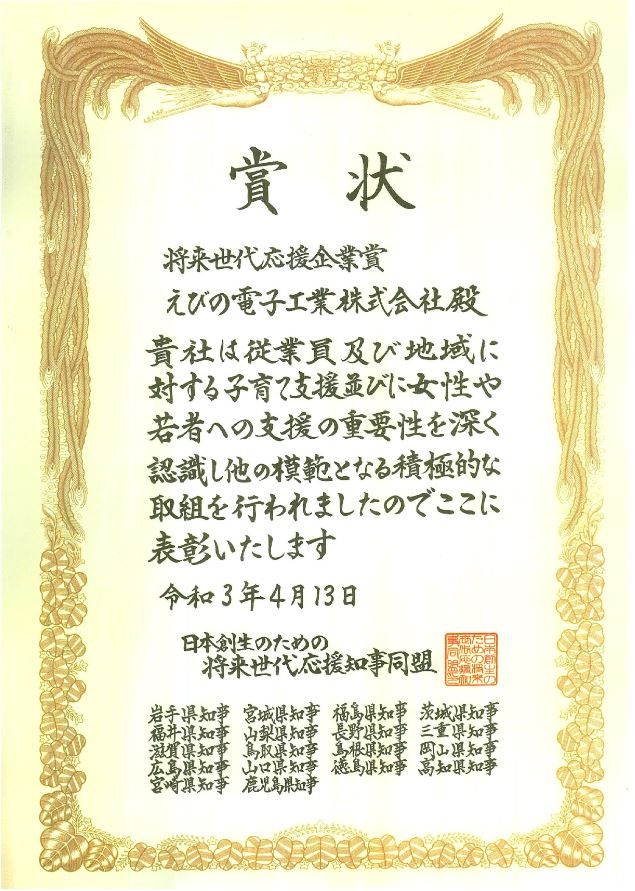 賞 状
将来世代応援企業賞
えびの電子工業株式会社殿
貴社は従業員及び地域に
対する子育て支援並びに女性や
若者への支援の重要性を深く
認識し他の模範となる積極的な
取組を行われましたのでここに
表彰いたします
令和3年4月13日
日本創生のための
将来世代応援知事同盟
岩手県知事 宮城県知事 福島県知事 茨城県知事
福井県知事 山梨県知事 長野県知事 三重県知事
滋賀県知事 鳥取県知事 島根県知事 岡山県知事
広島県知事 山口県知事 徳島県知事 高知県知事
宮崎県知事 鹿児島県知事